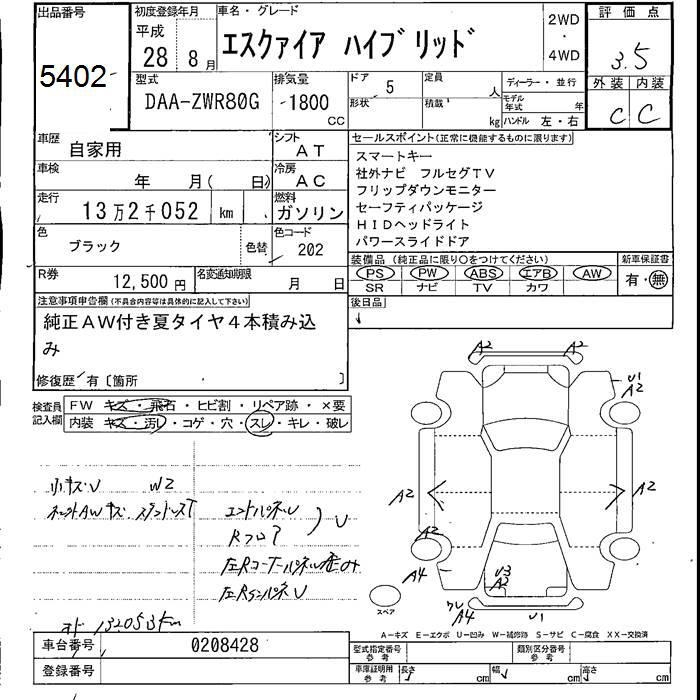 出品番号
5402
初度登録年月
平成
28 年 8 月
車名・グレード
エスクァイア ハイブリッド
2WD
・
4WD
評価点
3.5
外装 内装
C C
型式
DAA-ZWR80G
排気量
1800
CC
ドア 5
形状
定員 人
積載 kg
ディーラー・並行
モデル年式 年
ハンドル 左・右
車歴
自家用
シフト
AT
車検
年 月( 日)
冷房
AC
走行
13万2千052 km
燃料
ガソリン
色
ブラック
色替
色コード
202
R券
12,500円
名変通知期限
月 日
セールスポイント(正常に機能するものに限ります)
スマートキー
社外ナビ フルセグTV
フリップダウンモニター
セーフティパッケージ
HIDヘッドライト
パワースライドドア
装備品(純正品に限り○をつけてください)
PS PW ABS エアB AW
SR ナビ TV カワ
新車保証書
有・無
後日品
注意事項申告欄(不具合内容等は具体的に記入して下さい)
純正AW付き夏タイヤ4本積み込
み
修復歴 有〔箇所 〕
検査員
記入欄
FW キズ・飛石・ヒビ割・リペア跡・×要
内装 キズ・汚レ・コゲ・穴・スレ・キレ・破レ
小キズU W2
エンドパネルU
Rフロア
U
左Rコーナーパネル歪み
132053km
A2 A2
U1
A2
A2
A2
A2
A4
U3
A2
A4
U1
スペア
A-キズ E-エクボ U-凹み W-補修跡 S-サビ C-腐食 XX-交換済
車台番号
0208428
登録番号
型式指定番号
参考
類別区分番号
参考
車庫証明用
参考
長さ cm
幅 cm
高さ cm